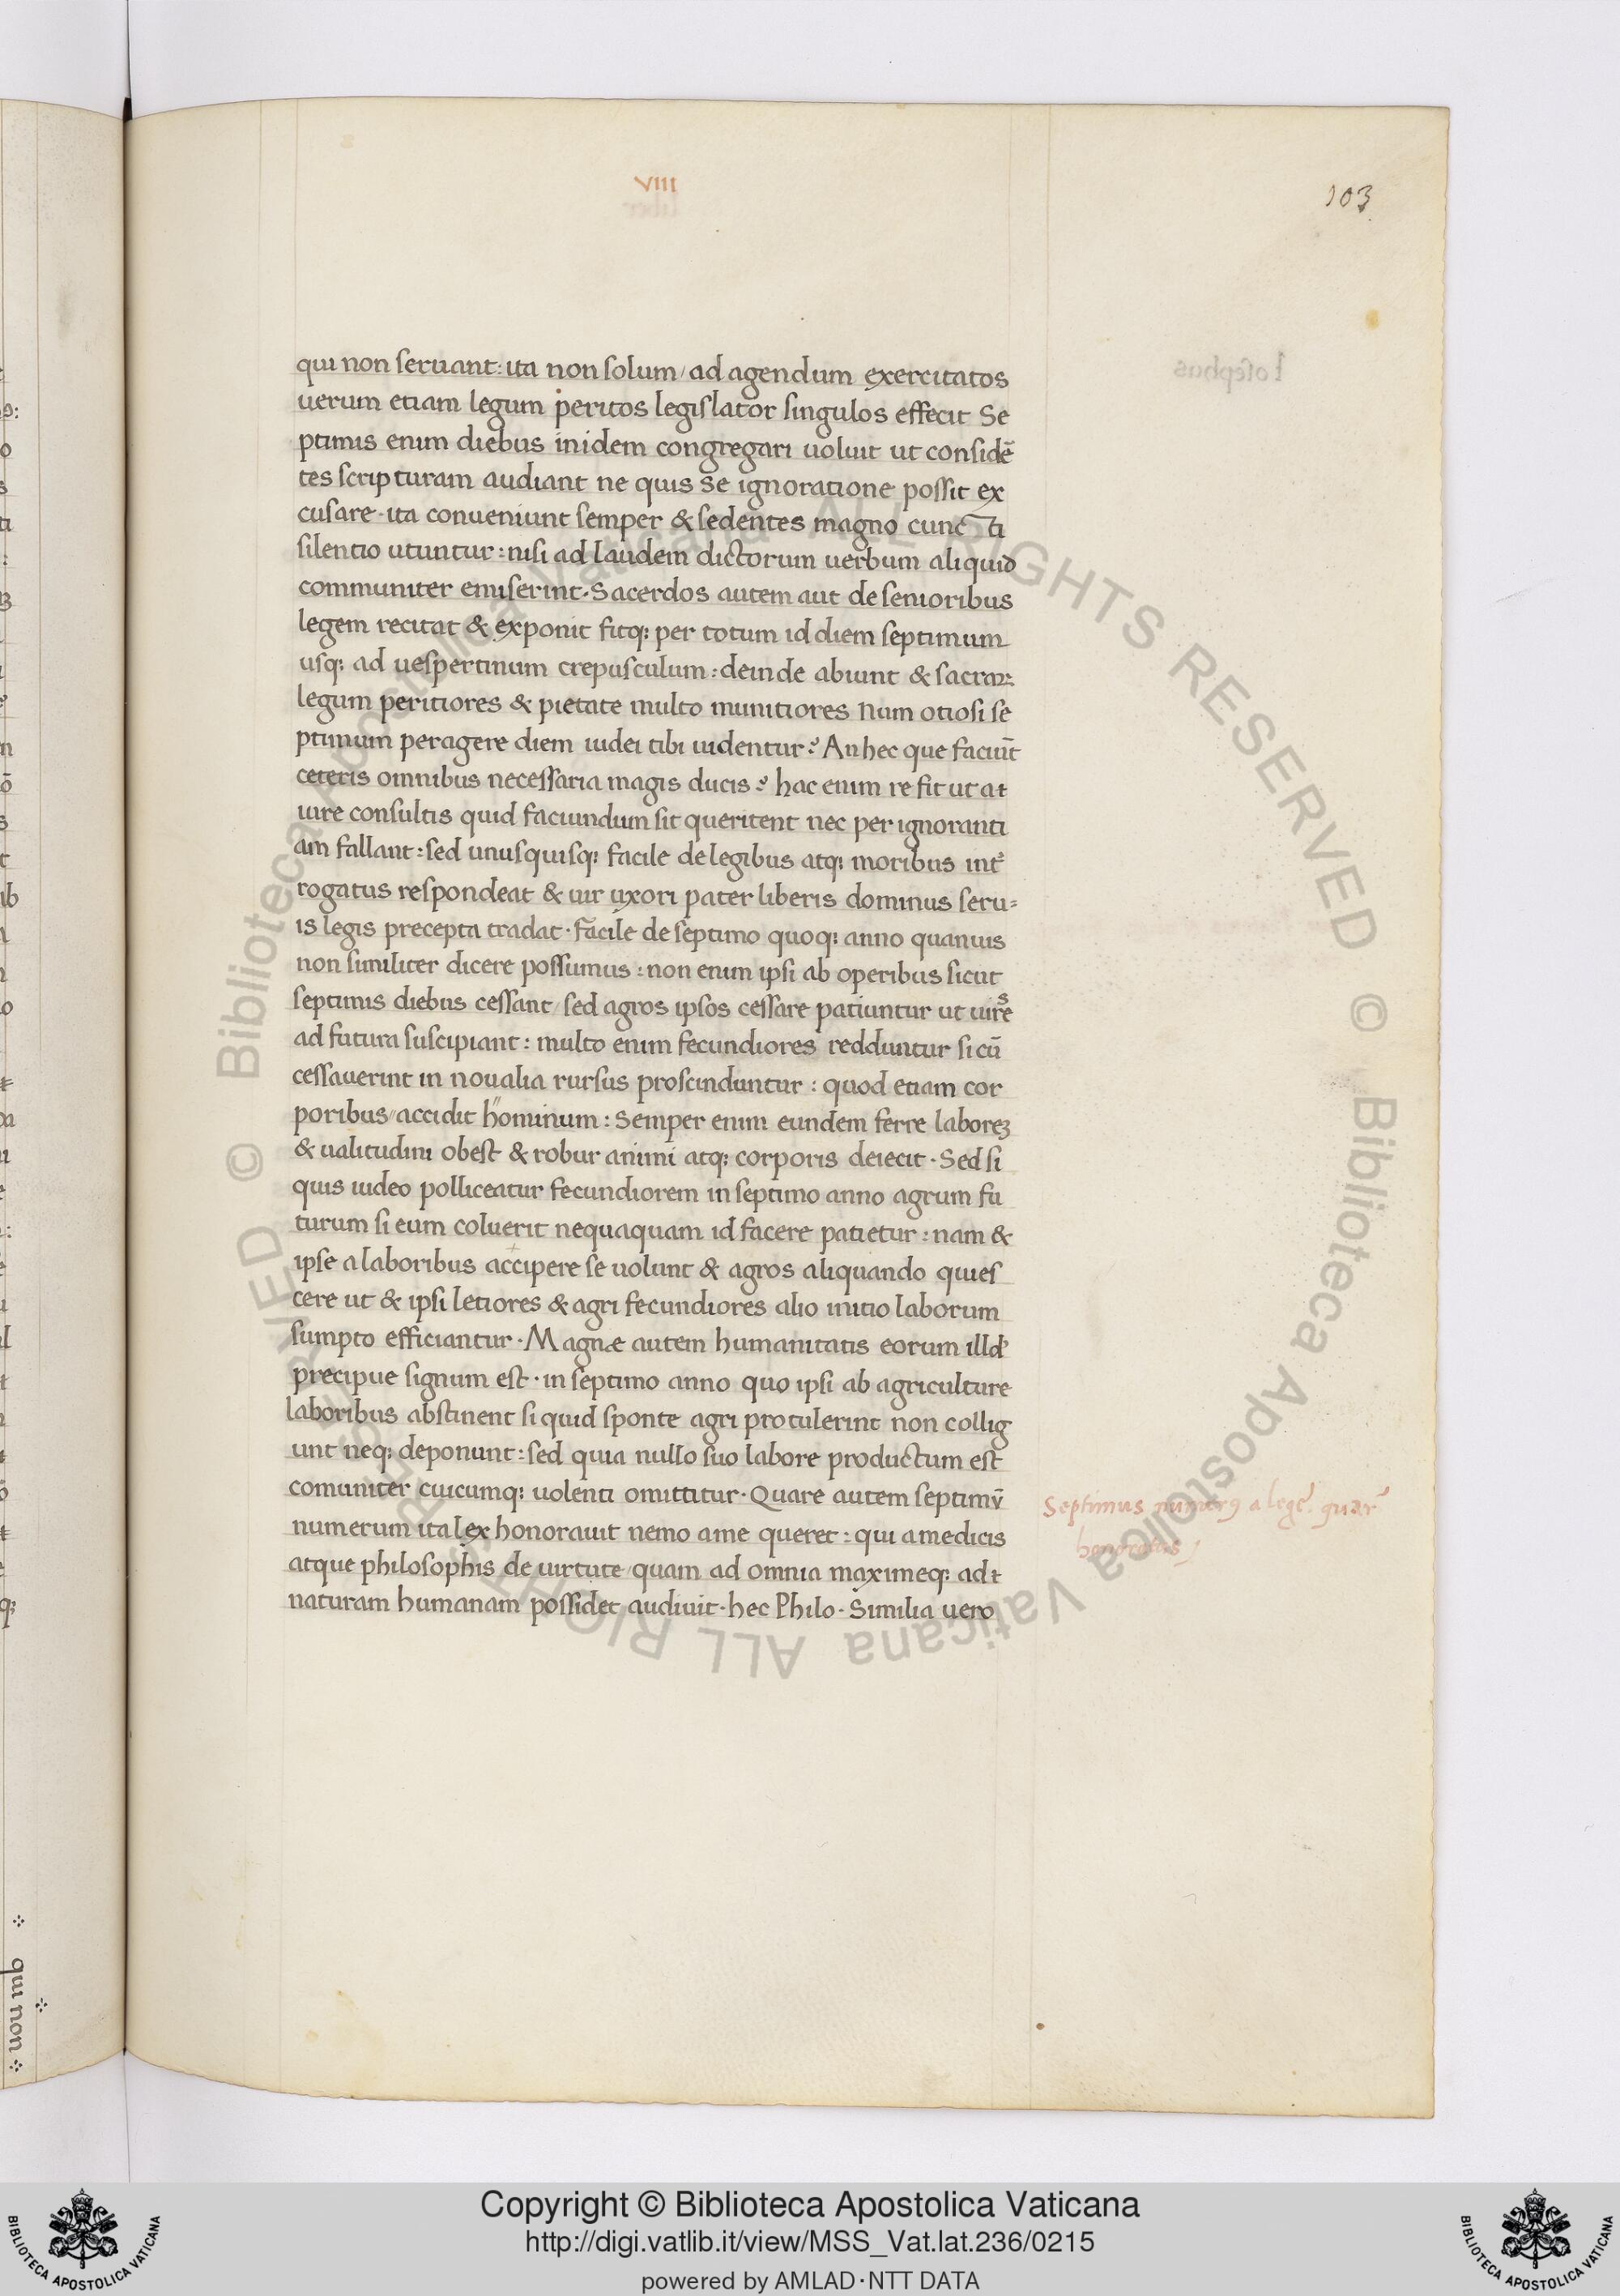 VIII
103
qui non seruant: ita non solum/ ad agendum exercitatos
uerum etiam legum peritos legislator singulos effecit Se
ptimis enim diebus inidem congregari uoluit ut considē
tes scripturam audiant ne quis se ignoratione possit ex
cusare· ita conueniunt semper & sedentes magno cuncti
silentio utuntur: nisi ad laudem dictorum uerbum aliquid
communiter emiserint· Sacerdos autem aut de senioribus
legem recitat & exponit fitq; per totum id diem septimum
usq; ad uespertinum crepusculum: deinde abiunt & sacraꝝ
legum peritiores & pietate multo munitiores Num otiosi se
ptimum peragere diem iudei tibi uidentur? An hec que faciūt
ceteris omnibus necessaria magis ducis? hac enim re fit ut a
iure consultis quid faciundum sit queritent nec per ignoranti
am fallant: sed unusquisq; facile de legibus atq; moribus int̾
rogatus respondeat & uir uxori pater liberis dominus seru=
is legis precepta tradat· facile de septimo quoq; anno quanuis
non similiter dicere possumus: non enim ipsi ab operibus sicut
septimis diebus cessant/ sed agros ipsos cessare patiuntur ut uires
ad futura suscipiant: multo enim fecundiores redduntur si cū
cessauerint in noualia rursus proscinduntur: quod etiam cor
poribus accidit hominum: Semper enim eundem ferre laboreꝫ
& ualitudini obest & robur animi atq; corporis deiecit· Sed si
quis iudeo polliceatur fecundiorem in septimo anno agrum fu
turum si eum coluerit nequaquam id facere patietur: nam &
ipse a laboribus accipere se uolunt & agros aliquando quies
cere ut & ipsi letiores & agri fecundiores alio initio laborum
sumpto efficiantur· Magnæ autem humanitatis eorum illd̾
precipue signum est· in septimo anno quo ipsi ab agriculture
laboribus abstinent si quid sponte agri protulerint non collig
unt neq; deponunt: sed quia nullo suo labore productum est
comuniter cuicumq; uolenti omittitur· Quare autem septimū
numerum ita lex honorauit nemo a me queret: qui a medicis
atque philosophis de uirtute quam ad omnia maximeq; ad
naturam humanam possidet audiuit· hec Philo· Similia uero
Septimus numerꝰ a lege quar̾
honoratus
qui non
© Biblioteca Apostolica Vaticana ALL RIGHTS RESERVED © Biblioteca Apostolica Vaticana ALL RIGHTS RESERVED
Copyright © Biblioteca Apostolica Vaticana
http://digi.vatlib.it/view/MSS_Vat.lat.236/0215
powered by AMLAD·NTT DATA
BIBLIOTECA APOSTOLICA VATICANA
BIBLIOTECA APOSTOLICA VATICANA